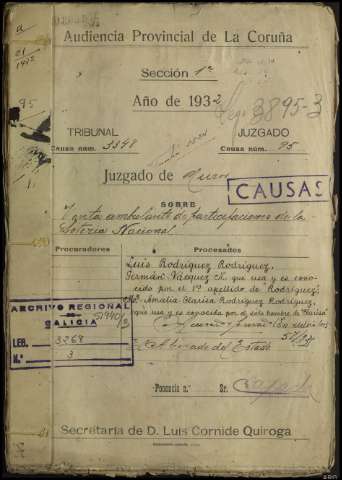 a
21
1932
Audiencia Provincial de La Coruña
Sección 1ª
Año de 1932
Leg. 3895-3
95
TRIBUNAL
JUZGADO
Causa núm. 3348
Causa núm. 95
Juzgado de
CAUSAS
SOBRE
Venta ambulante de participaciones de la
Lotería Nacional
Procuradores
Procesados
Luis Rodríguez Rodríguez,
Germán Vázquez que usa y es cono-
cido por el 1º apellido de Rodríguez,
Mª Amalia Clarisa Rodríguez Rodríguez,
que usa y es conocida por el solo nombre de Clarisa
ARCHIVO REGIONAL
GALICIA
LEG. 3268
N.º 3
Abogado del Estado
Ponencia n.º
Sr.
Secretaría de D. Luis Cornide Quiroga